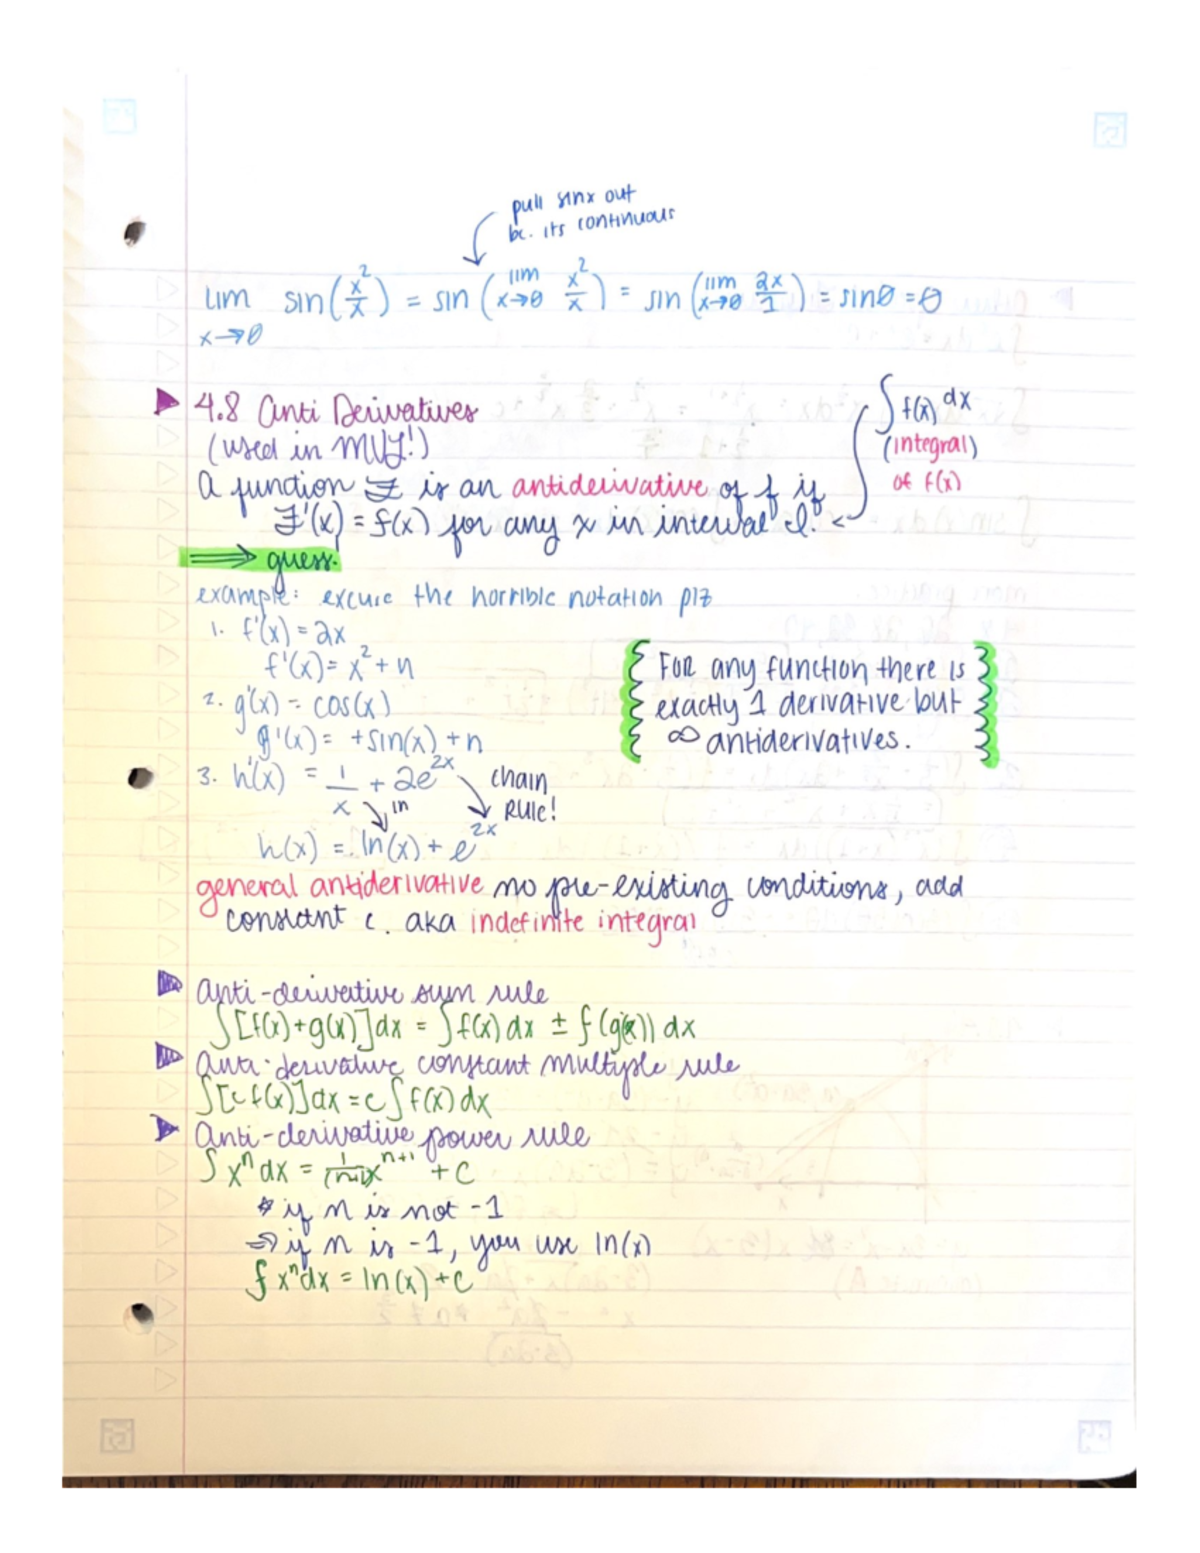 pull sinx out
bc. its continuous
lim x→0 sin(x²/x) = sin(lim x→0 x²/x) = sin(lim x→0 2x/1) = sin0 = 0
4.8 Anti Derivatives
(used in MVT!)
∫f(x) dx
(integral)
of f(x)
A function F is an antiderivative of f if
F'(x) = f(x) for any x in interval I.
⟹ guess.
example: excuse the horrible notation plz
1. f'(x) = 2x
f'(x) = x² + n
2. g'(x) = cos(x)
g'(x) = +sin(x) + n
For any function there is
exactly 1 derivative but
∞ antiderivatives.
3. h'(x) = 1/x + 2e^2x
chain
Rule!
ln
h(x) = ln(x) + e^2x
general antiderivative no pre-existing conditions, add
constant c. aka indefinite integral
Anti-derivative sum rule
∫[f(x)+g(x)]dx = ∫f(x) dx ± ∫(g(x)) dx
Anti-derivative constant multiple rule
∫[c f(x)]dx = c∫f(x) dx
Anti-derivative power rule
∫x^n dx = 1/(n+1) x^n+1 + C
* if n is not -1
⇒ if n is -1, you use ln(x)
∫x^n dx = ln(x) + C